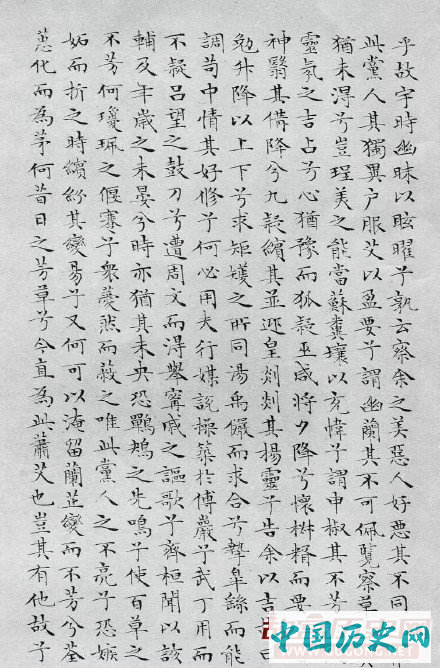 乎故宇時幽昧以眩曜兮孰云察余之美惡人好惡其不同
此黨人其獨異戶服艾以盈要兮謂幽蘭其不可佩覽察草
猶未淂兮豈珵美之能當蘇糞壤以充幃兮謂申椒其不芳
靈氛之吉占兮心猶豫而狐疑巫咸將夕降兮懷椒糈而要
神翳其備降兮九疑繽其並迎皇剡剡其揚靈兮告余以吉
勉升降以上下兮求矩矱之所同湯禹儼而求合兮摯皋繇而能
調苟中情其好修兮何必用夫行媒說操築於傅巖兮武丁用而
不疑呂望之鼓刀兮遭周文而得舉甯戚之謳歌兮齊桓聞以該
輔及年歲之未晏兮時亦猶其未央恐鴂之先鳴兮使百草之
不芳何瓊珮之偃蹇兮衆薆然而蔽之唯此黨人之不亮兮恐嫉
妬而折之時繽紛其變易兮又何可以淹留蘭芷變而不芳兮荃
蕙化而為茅何昔日之芳草兮今直為此蕭艾也豈其有他故兮
中国历史网